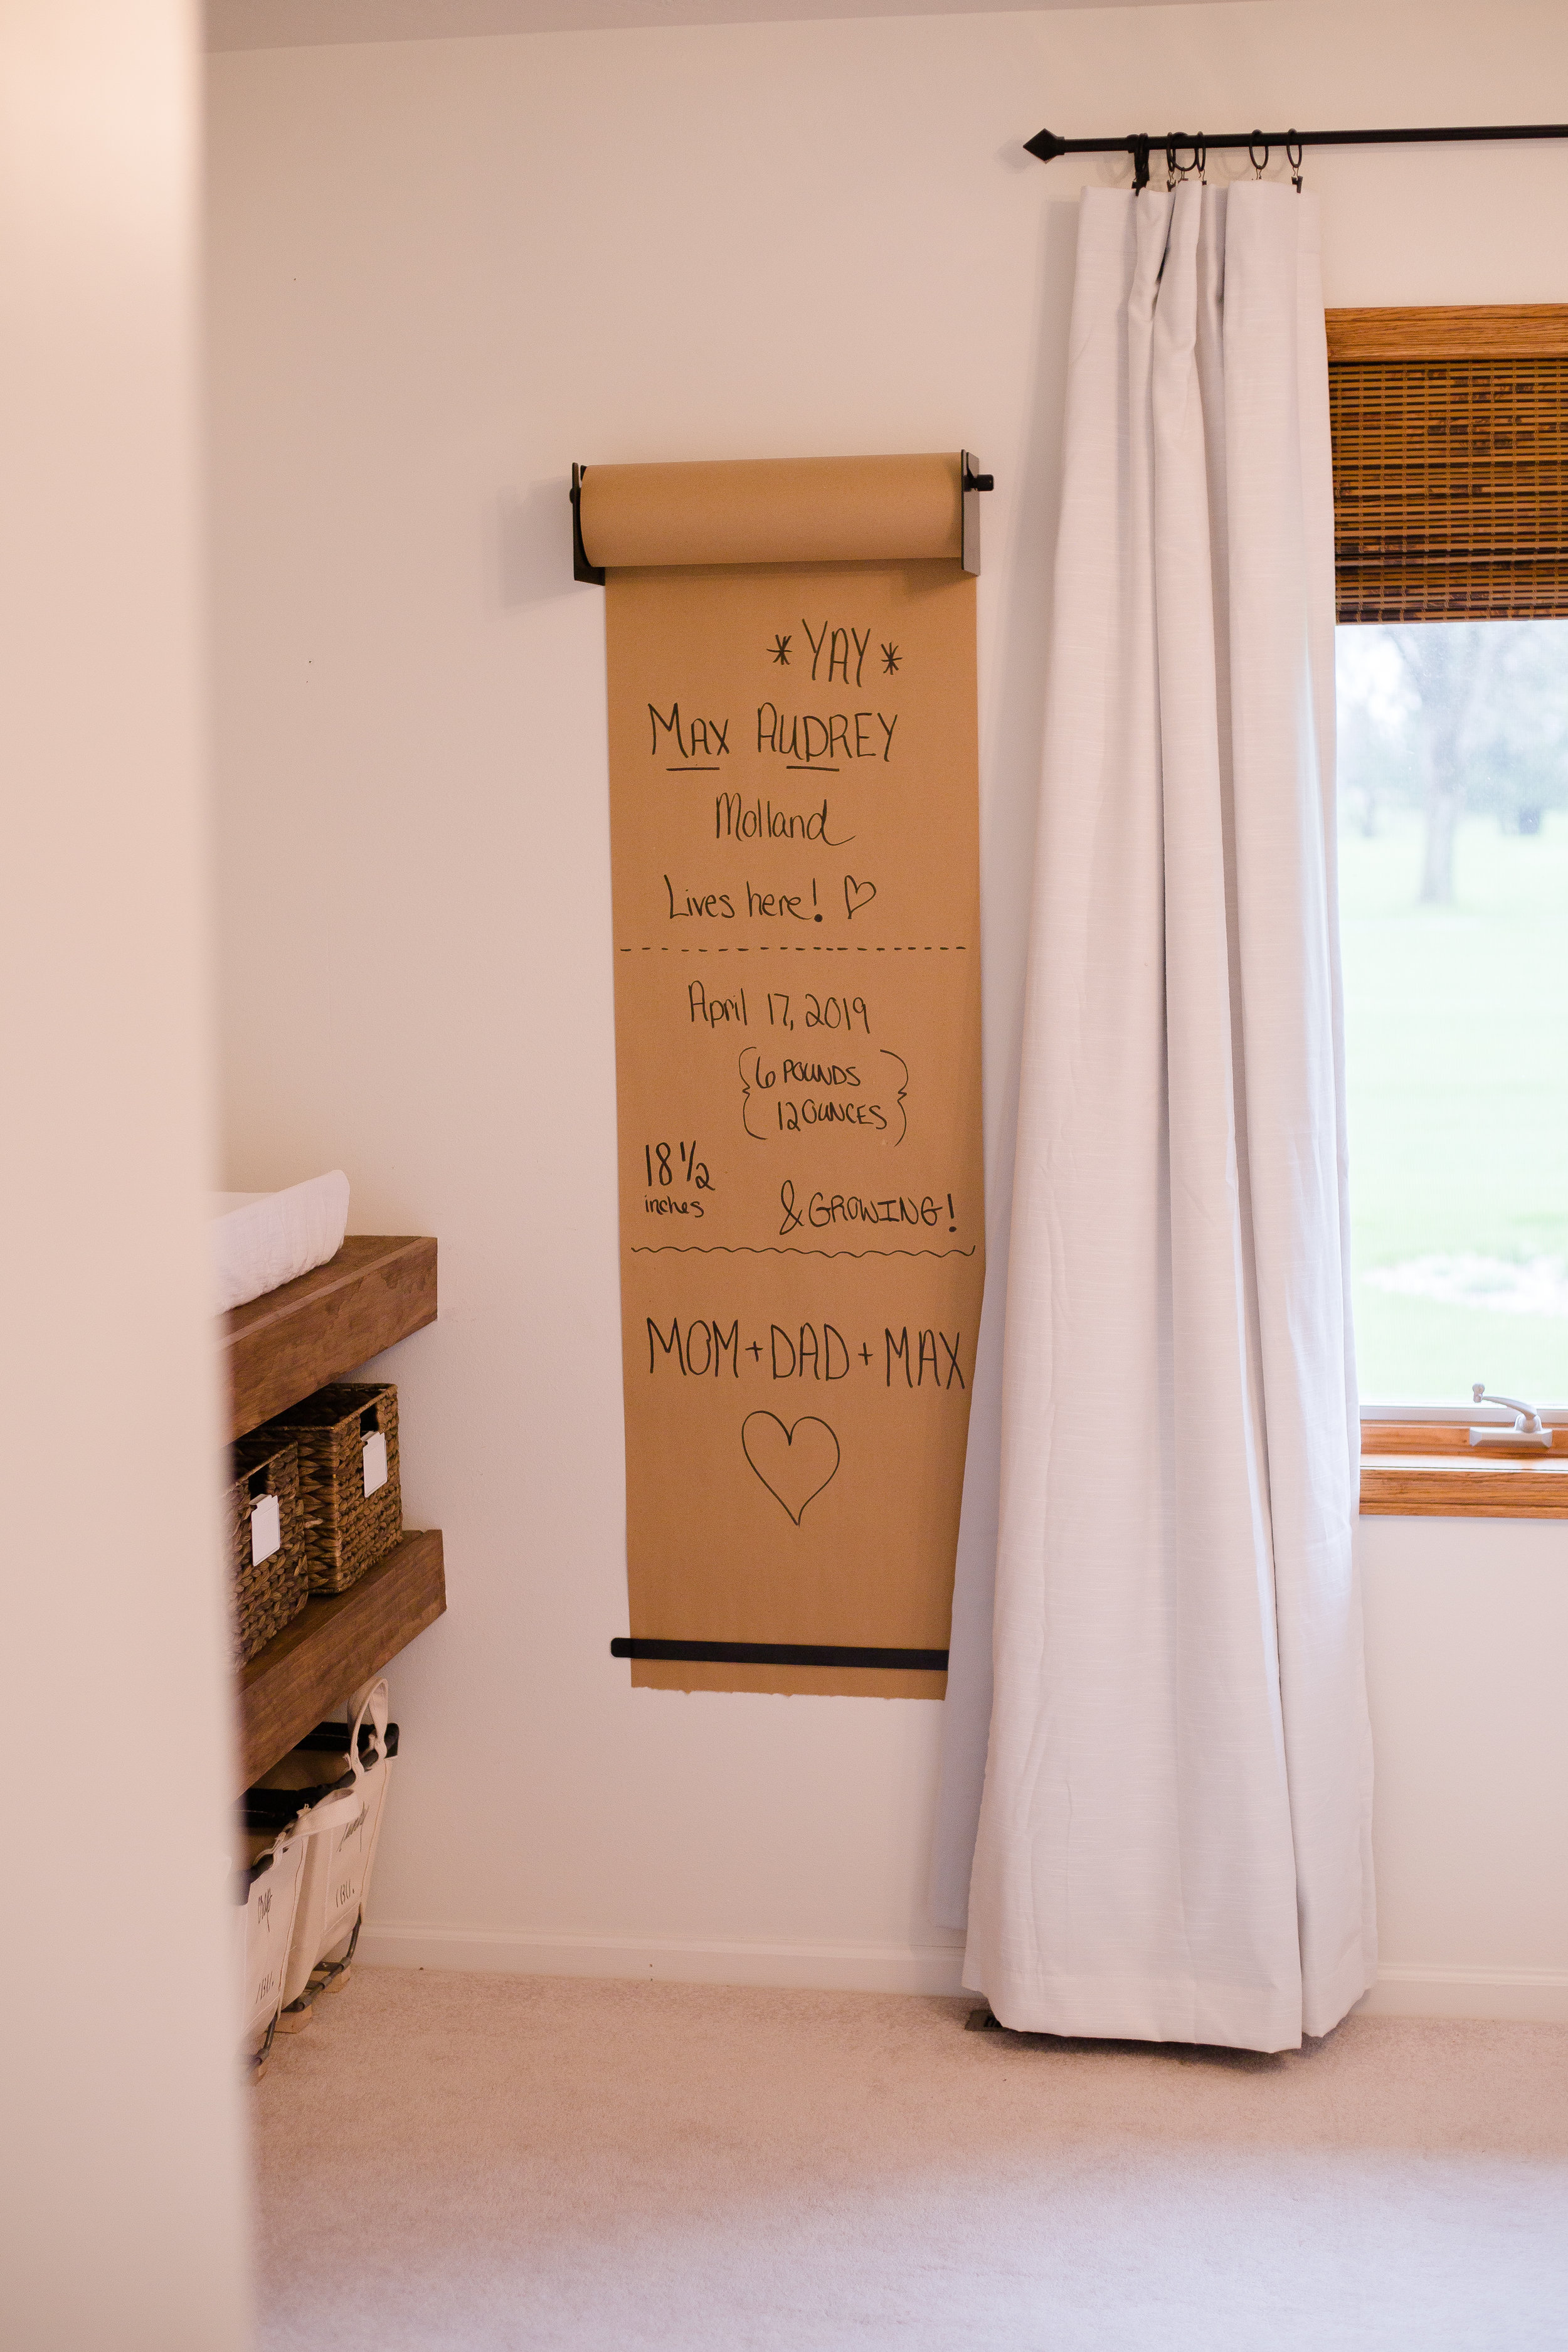 *YAY*
MAX AUDREY
Molland
Lives here! ♡
April 17, 2019
{6 POUNDS
12 OUNCES}
18 1/2
inches
& GROWING!
MOM + DAD + MAX